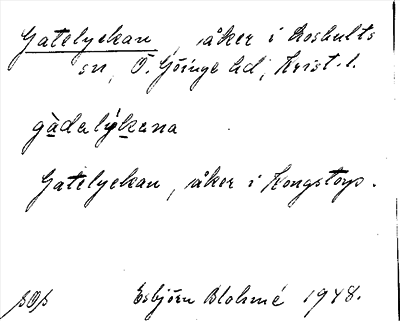 Gatelyckan, åker i Loshults
sn, Ö. Göinge hd, Krist. l.
gàdalýkana
Gatelyckan, åker i Kongstorp.
Esbjörn Blohmé 1948.